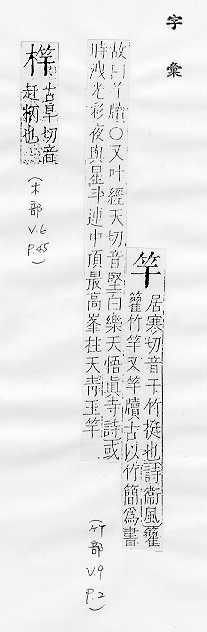 字彙
竿
居寒切音干竹挺也詩衛風籊
籊竹竿又竿牘古以竹簡為書
故曰竿牘○又叶經天切音堅白樂天悟真寺詩或
時洩光彩夜與星斗連中頂最高峯拄天青玉竿
(竹部
V.9
P.2)
古旱切音
赶柄也
(木部
V.6
P.45)